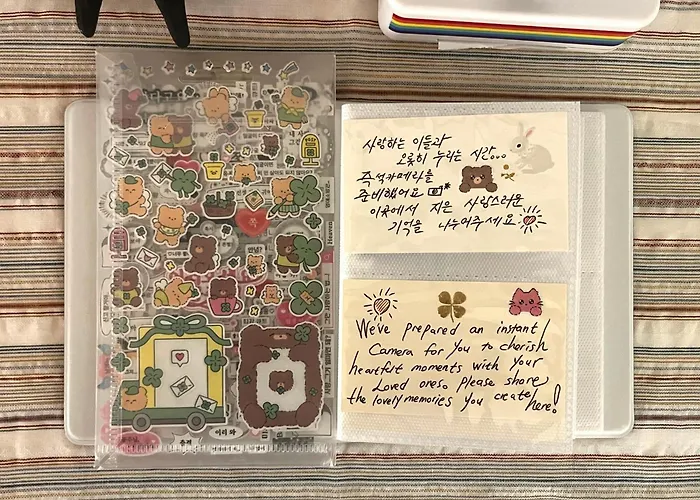 사랑하는 이들과
오롯이 누리는 시간...
즉석카메라를
준비했어요
이곳에서 지은 사랑스러운
기억을 나누어주세요
We've prepared an instant
Camera for you to cherish
heartfelt moments with your
Loved ones. Please share
the lovely memories you create
here!